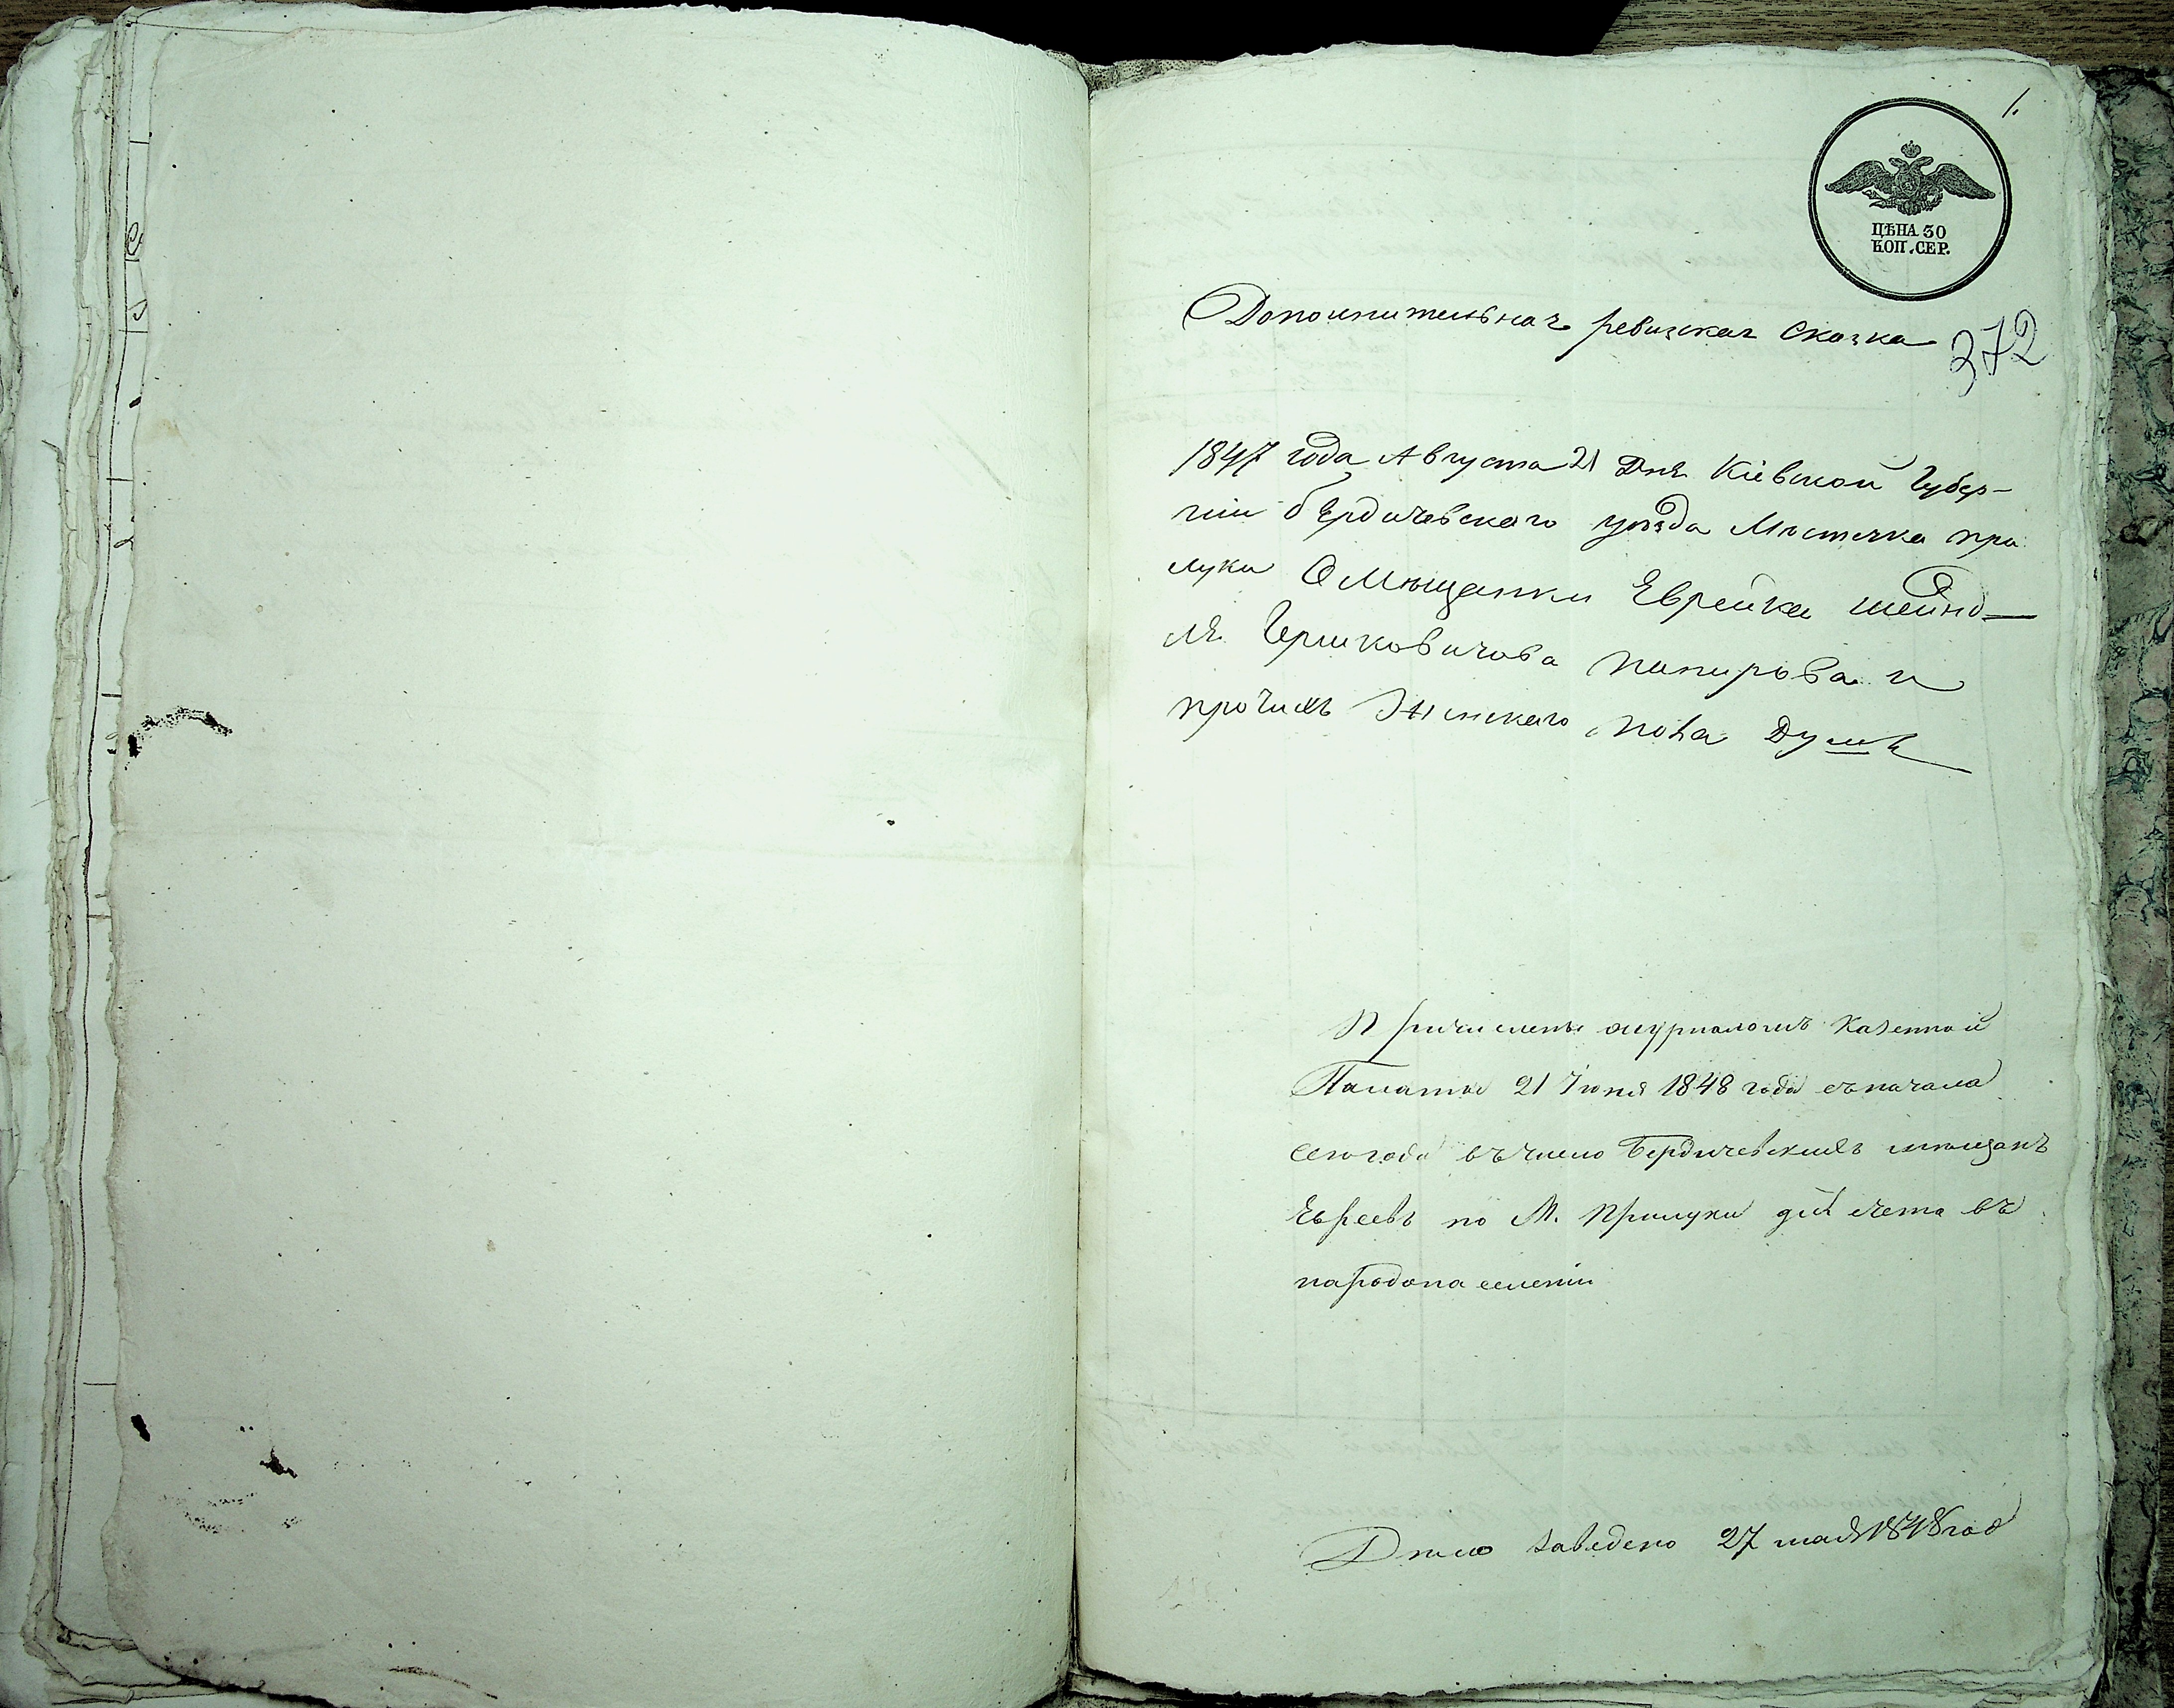 1.
ЦѢНА 30
КОП. СЕР.
Дополнительная ревизкая сказка
372
1847 года Августа 21 Дня Кіевской Губер-
ніи бердичевского уѣзда Мѣстечка при
луки О Мѣщанки Еврейки шейнд-
ля Гершковичова папирова и
прочихъ женскаго пола Душъ
Причислены журналомъ Казенной
Палаты 21 Іюня 1848 года съ начала
сего года въ число Бердичевскихъ мѣщанъ
Евреевъ по М. Прилуки для счета въ
народонаселеніи
Дѣло заведено 27 мая 1848 год